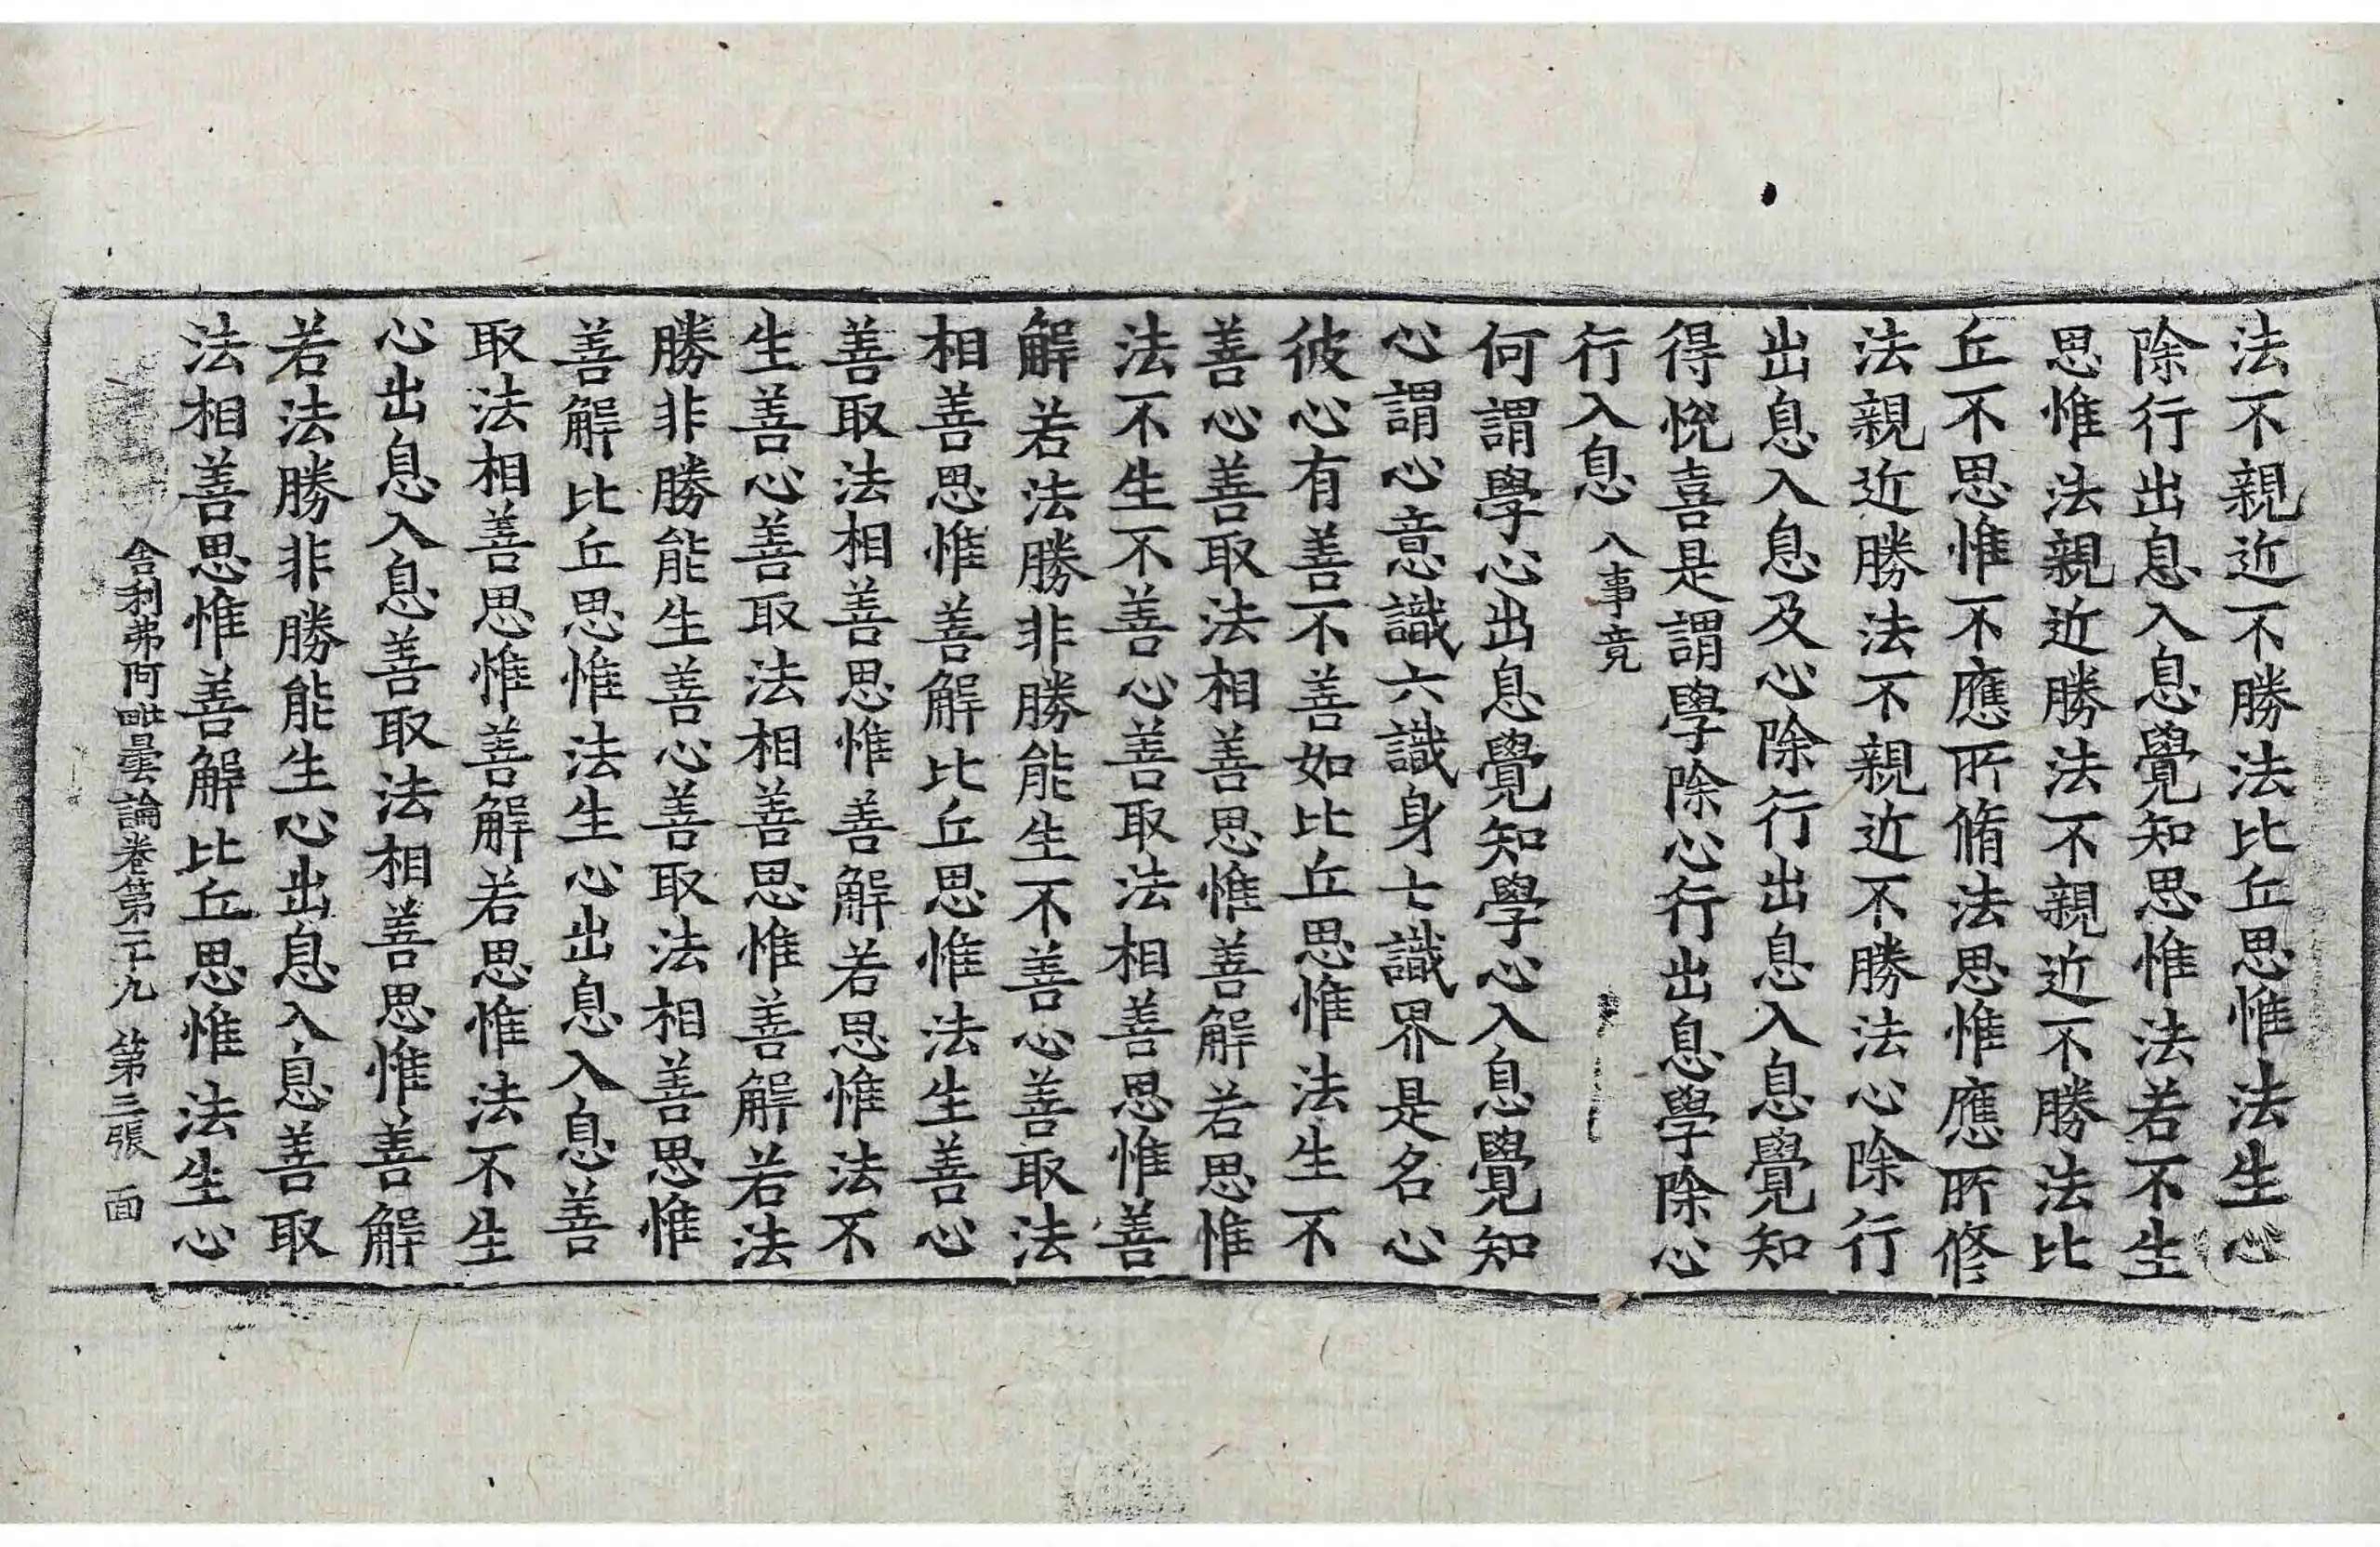 法不親近不勝法比丘思惟法生心
除行出息入息覺知思惟法若不生
思惟法親近勝法不親近不勝法比
丘不思惟不應所脩法思惟應所修
法親近勝法不親近不勝法心除行
出息入息及心除行出息入息覺知
得悅喜是謂學除心行出息學除心
行入息 八事竟
何謂學心出息覺知學心入息覺知
心謂心意識六識身七識界是名心
彼心有善不善如比丘思惟法生不
善心善取法相善思惟善解若思惟
法不生不善心善取法相善思惟善
解若法勝非勝能生不善心善取法
相善思惟善解比丘思惟法生善心
善取法相善思惟善解若思惟法不
生善心善取法相善思惟善解若法
勝非勝能生善心善取法相善思惟
善解比丘思惟法生心出息入息善
取法相善思惟善解若思惟法不生
心出息入息善取法相善思惟善解
若法勝非勝能生心出息入息善取
法相善思惟善解比丘思惟法生心
舍利弗阿毗曇論卷第二十九 第三張 面